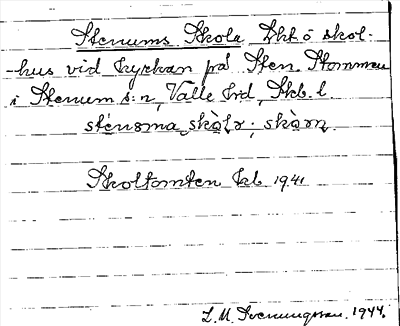 Stenums Skola, Fkl o skol-
-hus vid kyrkan på Sten. Stommen
i Stenum s:n, Valle hd, Skb. l.
sténsma skòla; skòla
Skoltomten Kb 1941
L. M. Svenungsson. 1944.